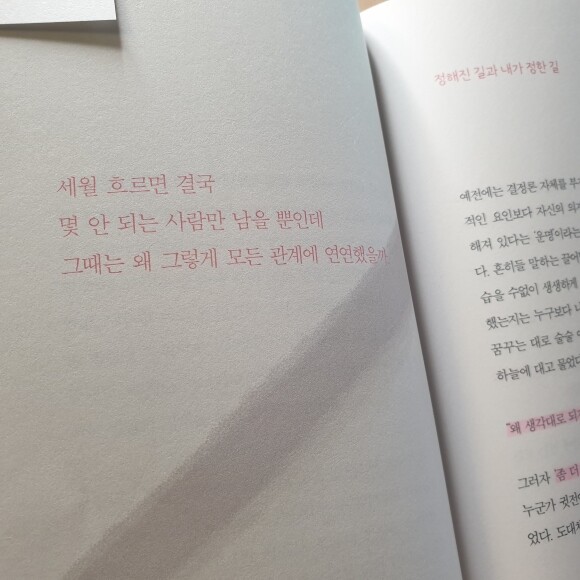 세월 흐르면 결국
몇 안 되는 사람만 남을 뿐인데
그때는 왜 그렇게 모든 관계에 연연했을까
정해진 길과 내가 정한 길
예전에는 결정론 자체를
적인 요인보다 자신의
해져 있다는 '운명이라는
다. 흔히들 말하는
습을 수없이 생생하게
했는지는 누구보다
꿈꾸는 대로 술술
하늘에 대고 물었다
"왜 생각대로
그러자 '좀
누군가 귓전에
었다. 도대체